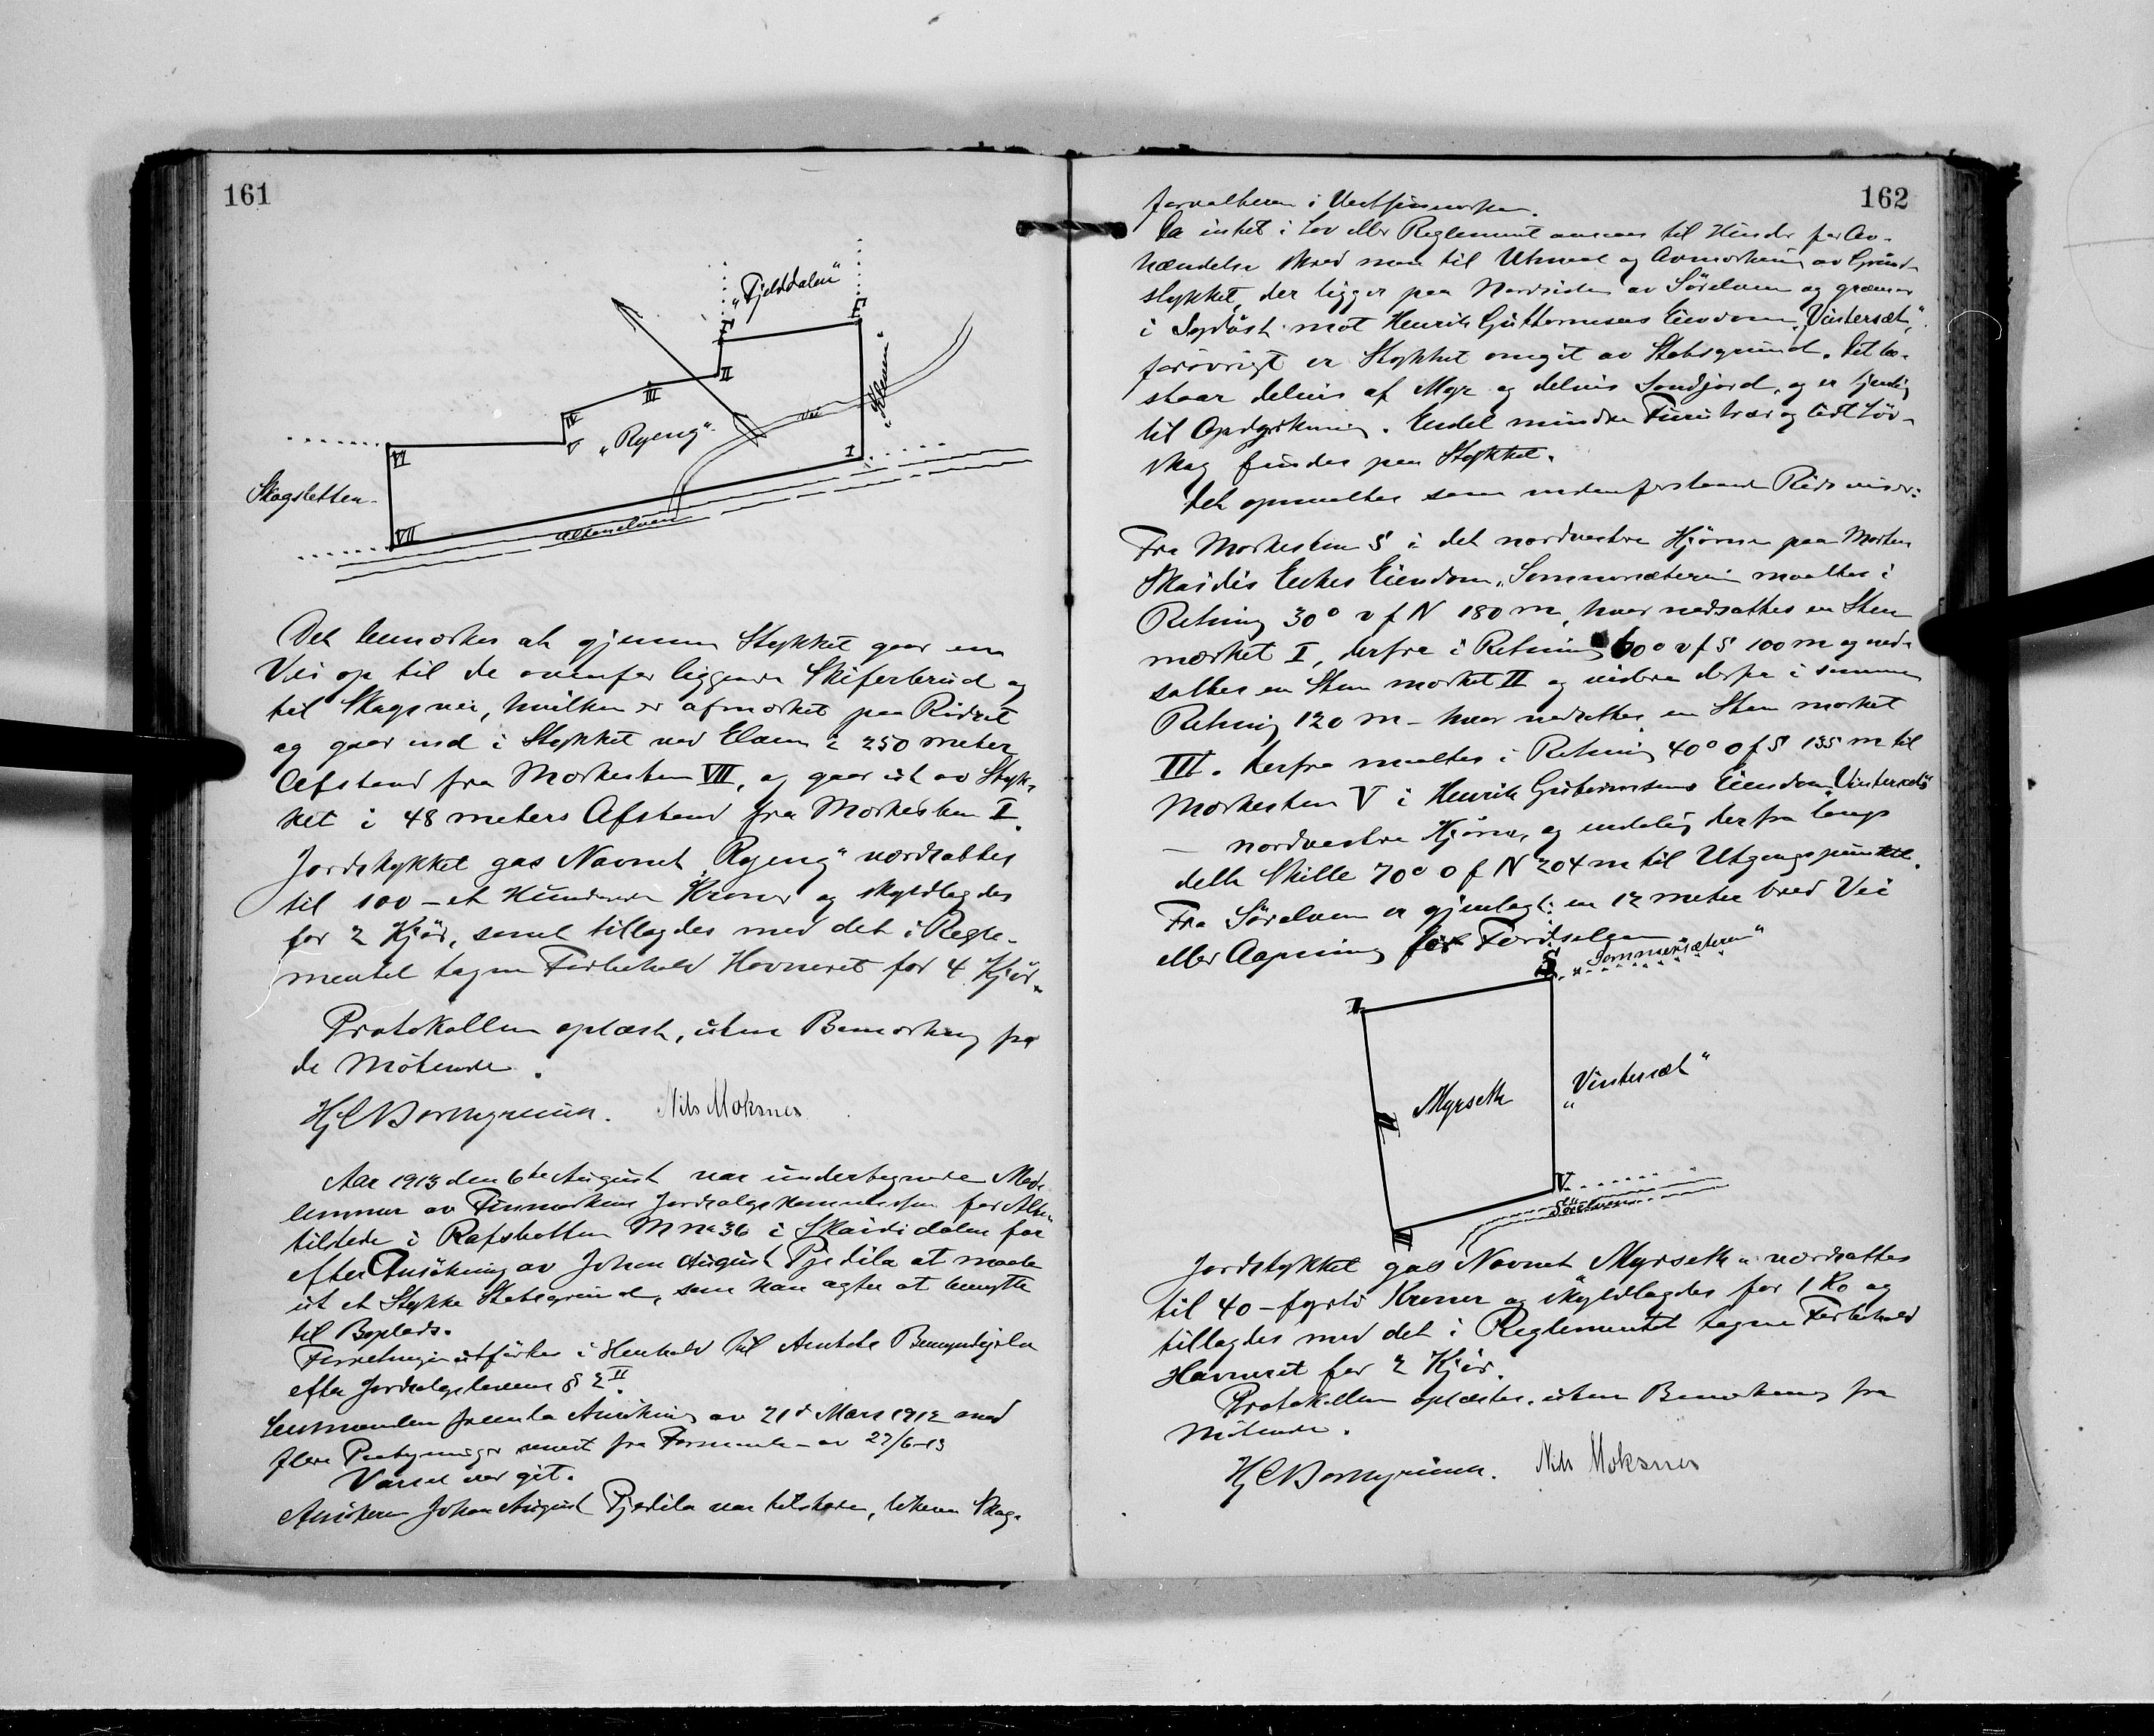 161
"Fjelddalen"
I
E
II
III
IV
V
"Ryeng"
Vei
I
VI
Skogsletten
VII
Altenelven
Det bemerkes at gjennem Stykket gaar en
Vei op til de ovenfor liggende Skiferbrud og
til Skogsvei, hvilken er afmerket paa Ridset
og gaar ind i Stykket ved Elven i 250 meter
Afstand fra Merkesten VII, og gaar ut av Styk-
ket i 48 meters Afstand fra Merkesten I.
Jordstykket gas Navnet "Ryeng" værdsattes
til 100 - et Hundrede Kroner og skyldlagdes
for 2 Kjør, samt tillagdes med det i Regle-
mentet tagne Forbehold Havneret for 4 Kjør.
Protokollen oplæst, uten Bemerkning fra
de Møtende.
Nils Moksnes
Aar 1913 den 6te August var undertegnede Med-
lemmer av Finmarkens Jordsalgskommission for Alten
tilstede i Rafsbotten M no 36 i Skaidi dalen for
efter Ansøkning av Johan August Pjedila at maale
ut et Stykke Statsgrund, som han agter at benytte
til Boplads.
Forretningen utføres i Henhold til Amtets Bemyndigelse
efter Jordsalgslovens § 2 II.
Lensmanden fremla Ansøkning av 21de Mars 1912 med
flere Paategninger senest fra Formanden av 27/6-13
Varsel var git.
Ansøkeren Johan August Pjedila var tilstede, likesaa Skog-
162
forvalteren i Vestfinmarken.
Da intet i Lov eller Reglement ansees til Hinder for Av-
hændelse skred man til Utmaal og Avmerkning av Grund-
stykket, der ligger paa Nordsiden av Sørelven og grænser
i Sydøst mot Henrik Guttormsens Eiendom "Vintersæt",
forøvrigt er Stykket omgit av Statsgrund. Det be-
staar delvis af Myr og delvis Sandjord, og er tjenlig
til Opdyrkning. Endel mindre Furutrær og lidt Løv-
skog findes paa Stykket.
Det opmaaltes som nedenforstaaende Rids viser:
Fra Merkesten S i det nordvestre Hjørne paa Morten
Skaidis Enkes Eiendom "Sommersæteren" maaltes i
Retning 30° v f N 180 m, hvor nedsattes en Sten
merket I, derfra i Retning 60° v f S 100 m og ned-
sattes en Sten merket II og videre derfra i samme
Retning 120 m - hvor nedsattes en Sten merket
III. Derfra maaltes i Retning 40° o f S 135 m til
Merkesten V i Henrik Guttormsens Eiendom "Vintersæts"
- nordvestre Hjørne, og endelig derfra langs
dette Skille 70° o f N 204 m til Utgangspunktet.
Fra Sørelven er gjenlagt en 12 meter bred Vei
eller Aapning for Færdselen
S
"Sommersæteren"
I
II
Myrseth
"Vintersæt"
V
Sørelven
III
Jordstykket gas Navnet Myrseth " værdsattes
til 40 - fyrti Kroner og skyldlagdes for 1 Ko og
tillagdes med det i Reglementet tagne Forbehold
Havneret for 2 Kjør.
Protokollen oplæstes, uten Bemerkning fra
Møtende.
Nils Moksnes